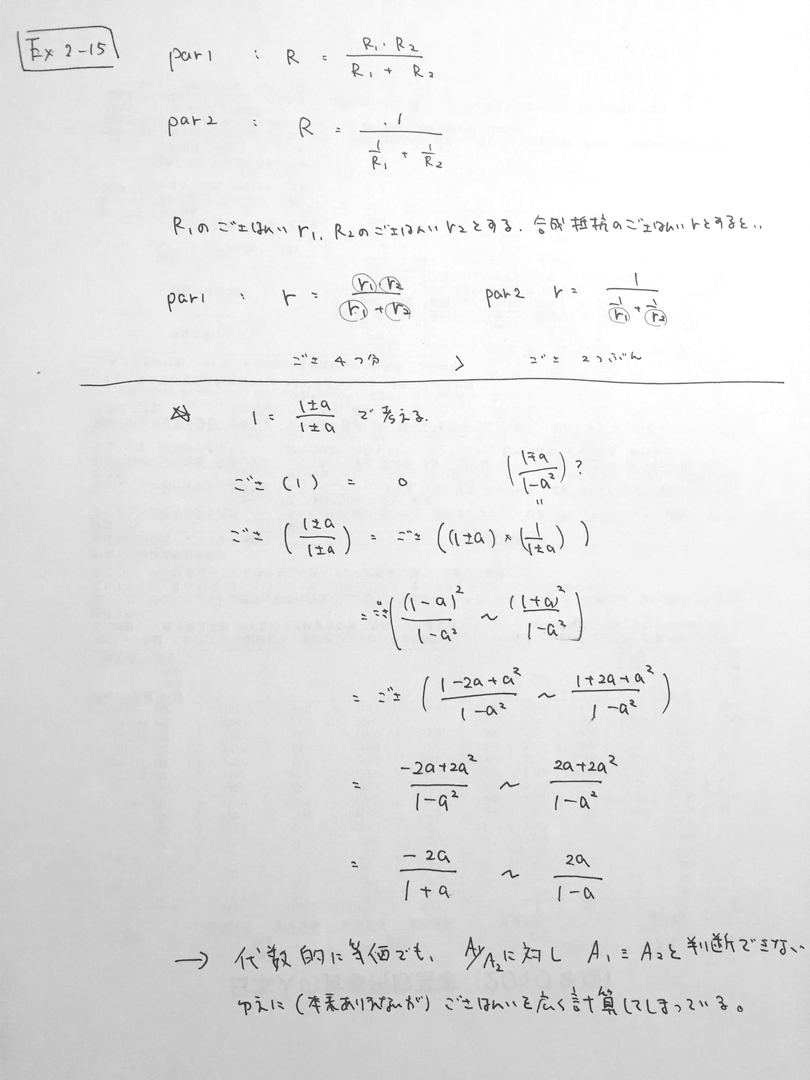 Ex 2-15
par1 : R = R₁・R₂ / (R₁ + R₂)
par2 : R = 1 / (1/R₁ + 1/R₂)
R₁のごさはんい r₁, R₂のごさはんい r₂とする. 合成抵抗のごさはんいrとすると..
par1 : r = r₁・r₂ / (r₁ + r₂) par2 r = 1 / (1/r₁ + 1/r₂)
ごさ 4つ分 > ごさ 2つぶん
☆ 1 = (1±a)/(1±a) で考える.
ごさ (1) = 0 ((1∓a)/(1-a²))?
"
ごさ ((1±a)/(1±a)) = ごさ ((1±a) × (1/(1±a)))
= ごさ ((1-a)²/(1-a²) ~ (1+a)²/(1-a²))
= ごさ ((1-2a+a²)/(1-a²) ~ (1+2a+a²)/(1-a²))
= (-2a+2a²)/(1-a²) ~ (2a+2a²)/(1-a²)
= -2a/(1+a) ~ 2a/(1-a)
→ 代数的に等価でも、 A₁/A₂に対し A₁ = A₂と判断できない
ゆえに (本来ありえないが) ごさはんいを広く計算してしまっている。